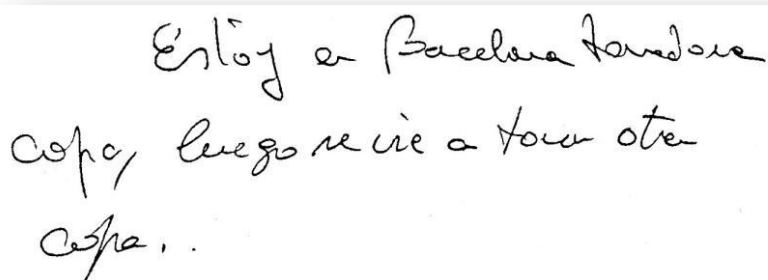 Estoy en Barcelona tomandome
copa, luego me iré a tomar otra
copa..